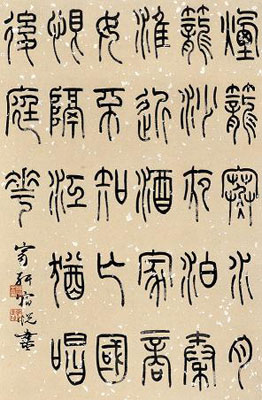 煙籠寒水月
籠沙夜泊秦
淮近酒家商
女不知亡國
恨隔江猶唱
後庭花
軒悅書